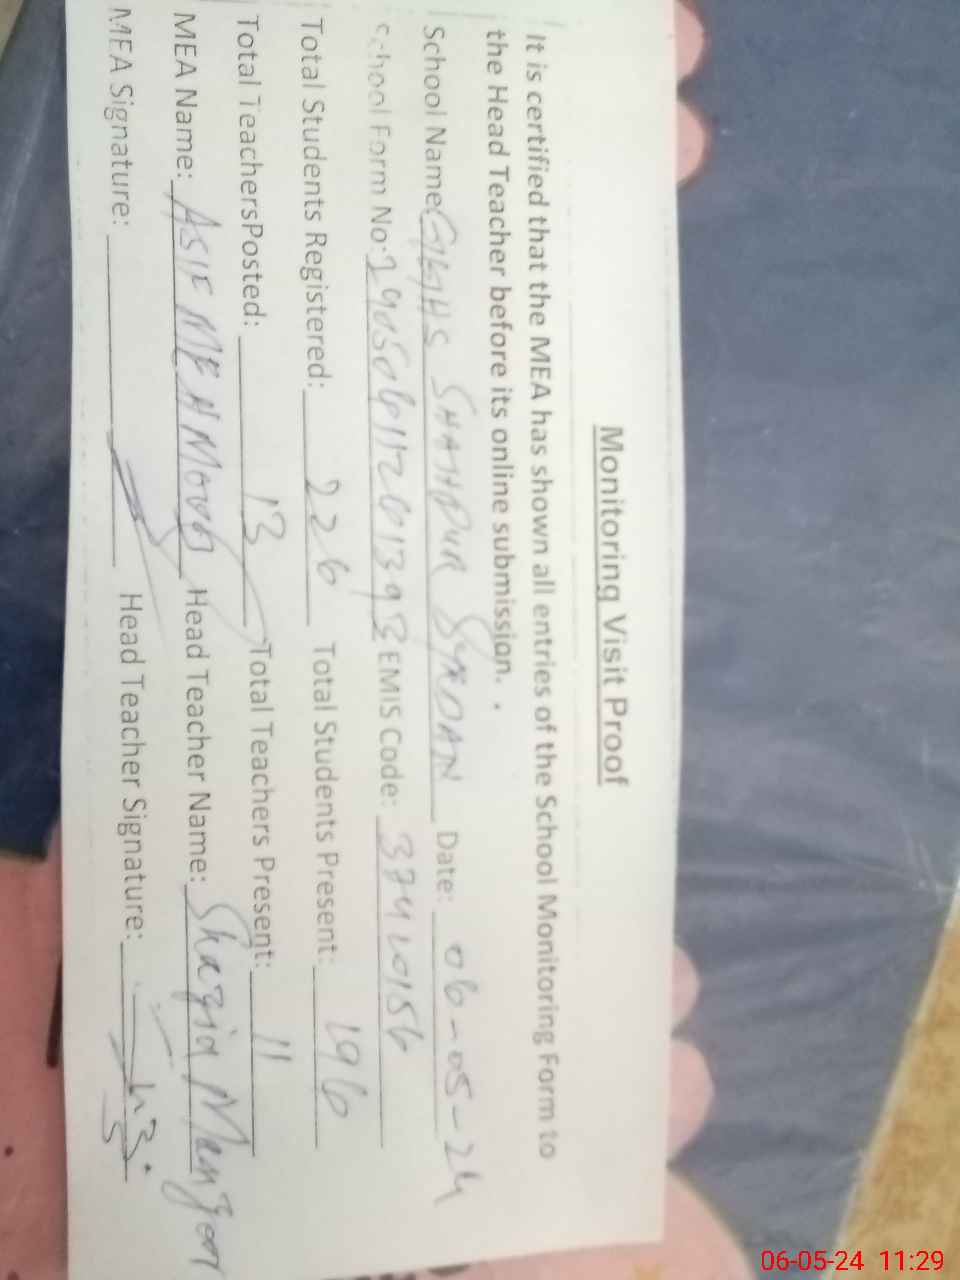 Monitoring Visit Proof
It is certified that the MEA has shown all entries of the School Monitoring Form to
the Head Teacher before its online submission.
School Name: GGHS SHAHPUR SYEDAN Date: 06-05-24
School Form No: EMIS Code:
Total Students Registered: 226 Total Students Present: 196
Total TeachersPosted: 13 Total Teachers Present: 11
MEA Name: ASIF MEHMOOD Head Teacher Name: Shazia Manzoor
MEA Signature: Head Teacher Signature:
06-05-24 11:29